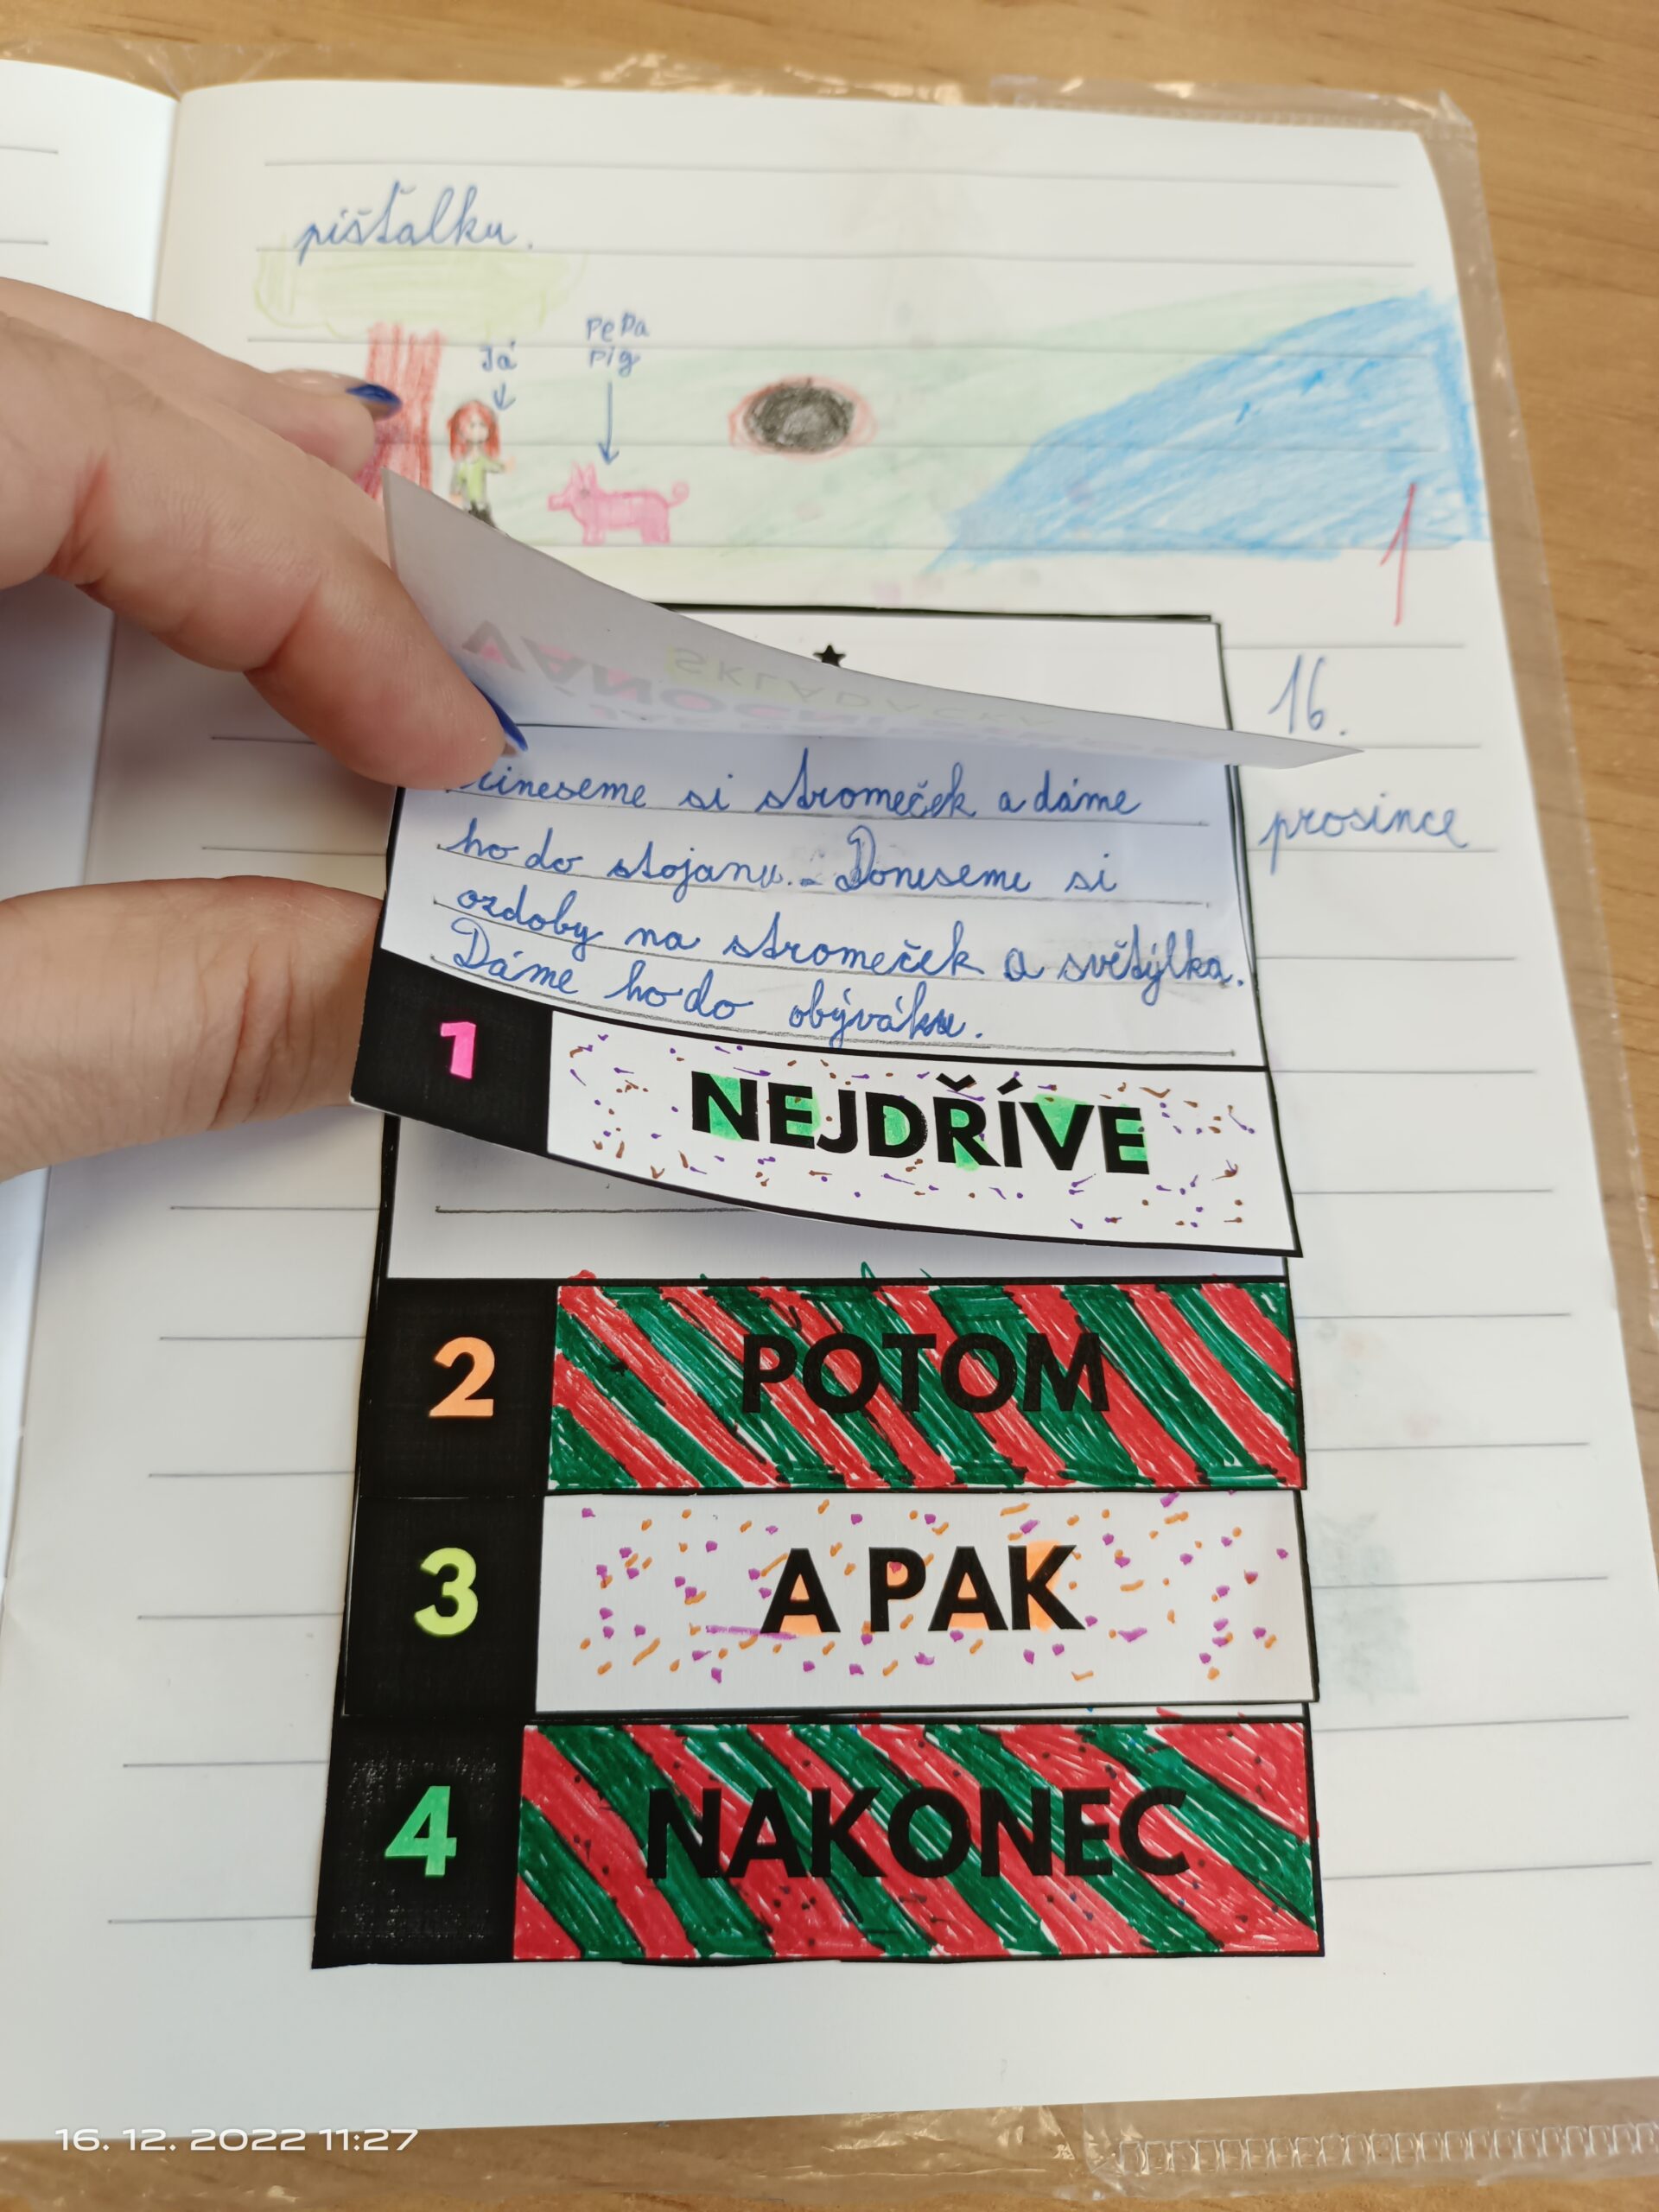 píšťalku.
Já
PePa
Pig
1
16.
prosince
VÁNOČNÍ
SKLÁDAČKA
řineseme si stromeček a dáme
ho do stojanu. Doneseme si
ozdoby na stromeček a světýlka.
Dáme ho do obýváku.
1 NEJDŘÍVE
2 POTOM
3 A PAK
4 NAKONEC
16. 12. 2022 11:27